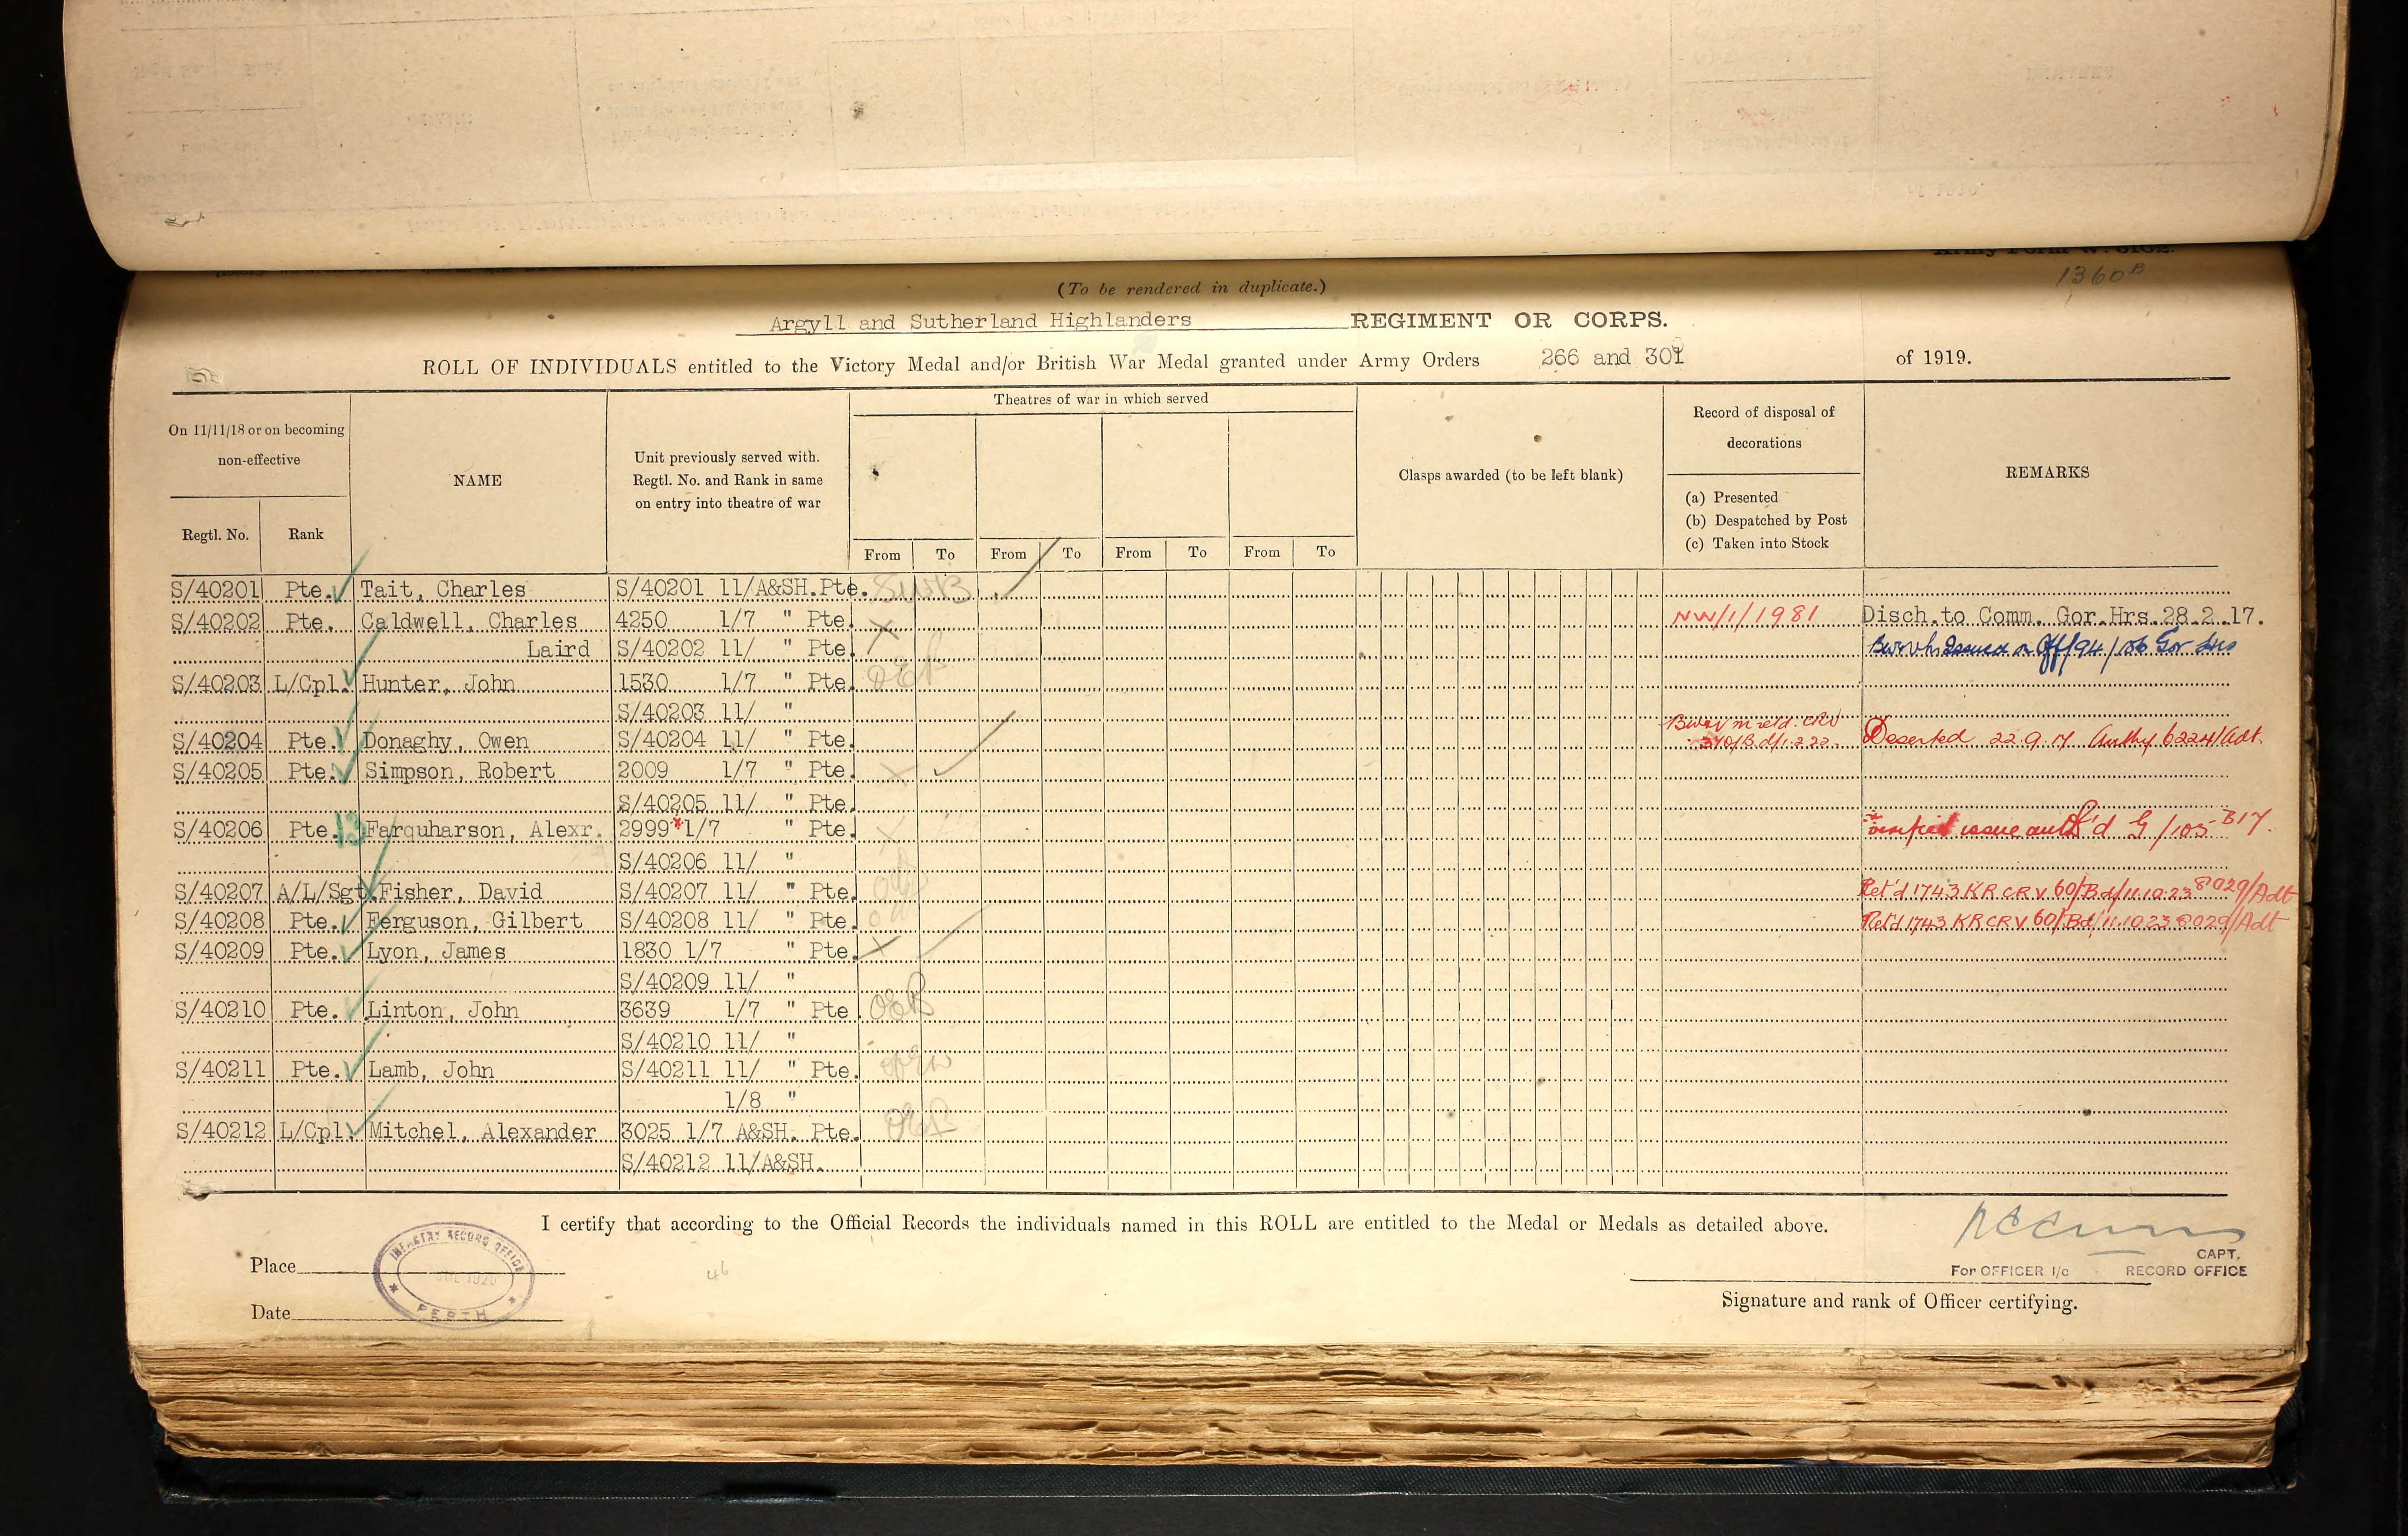 1360 B
(To be rendered in duplicate.)
Argyll and Sutherland Highlanders REGIMENT OR CORPS.
ROLL OF INDIVIDUALS entitled to the Victory Medal and/or British War Medal granted under Army Orders 266 and 301 of 1919.
On 11/11/18 or on becoming non-effective
NAME
Unit previously served with. Regtl. No. and Rank in same on entry into theatre of war
Theatres of war in which served
Clasps awarded (to be left blank)
Record of disposal of decorations
(a) Presented
(b) Despatched by Post
(c) Taken into Stock
REMARKS
Regtl. No. Rank From To From To From To From To
S/40201 Pte. Tait, Charles S/40201 11/A&SH. Pte.
S/40202 Pte. Caldwell, Charles 4250 1/7 " Pte. X NW/1/1981 Disch. to Comm. Gor. Hrs. 28.2.17.
Laird S/40202 11/ " Pte. Issued on
S/40203 L/Cpl. Hunter, John 1530 1/7 " Pte.
S/40203 11/ "
S/40204 Pte. Donaghy, Owen S/40204 11/ " Pte. Deserted 22.9.17 Authy 6224/Adt.
S/40205 Pte. Simpson, Robert 2009 1/7 " Pte. X
S/40205 11/ " Pte.
S/40206 Pte. 13 Farquharson, Alexr. 2999* 1/7 " Pte. X issue auth'd G/105 B17.
S/40206 11/ "
S/40207 A/L/Sgt. Fisher, David S/40207 11/ " Pte. Ret'd 1743 KR CRV 60/Bd/11.10.23 8029/Adt
S/40208 Pte. Ferguson, Gilbert S/40208 11/ " Pte. Ret'd 1743 KR CRV 60/Bd/11.10.23 8029/Adt
S/40209 Pte. Lyon, James 1830 1/7 " Pte. X
S/40209 11/ "
S/40210 Pte. Linton, John 3639 1/7 " Pte.
S/40210 11/ "
S/40211 Pte. Lamb, John S/40211 11/ " Pte.
1/8 "
S/40212 L/Cpl. Mitchel, Alexander 3025 1/7 A&SH. Pte.
S/40212 11/A&SH.
I certify that according to the Official Records the individuals named in this ROLL are entitled to the Medal or Medals as detailed above.
INFANTRY RECORD OFFICE
1920
PERTH
Place
46
Date
CAPT.
For OFFICER I/c RECORD OFFICE
Signature and rank of Officer certifying.